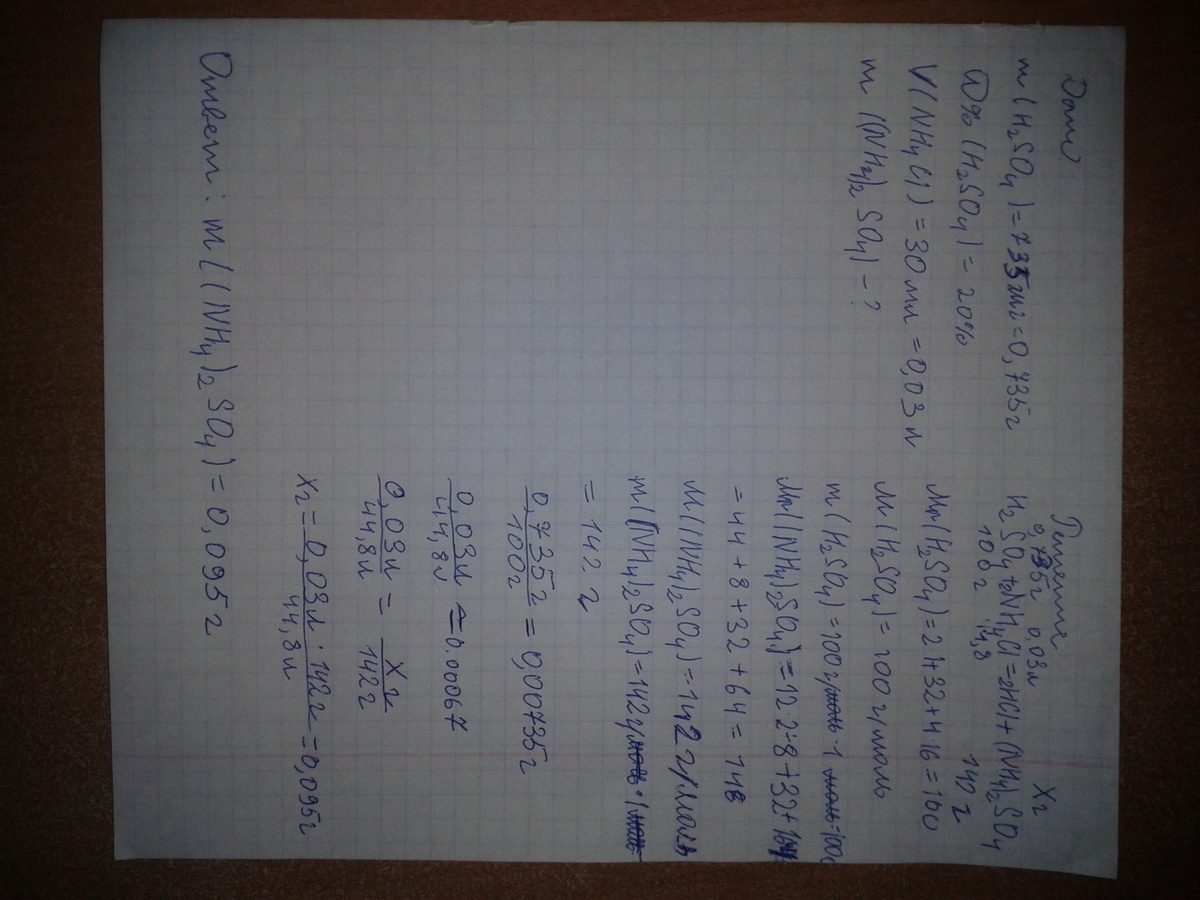 Дано
m (H₂SO₄) = 735 мг = 0,735 г
W% (H₂SO₄) = 20%
V(NH₄Cl) = 30 мл = 0,03 л
m ((NH₄)₂ SO₄) - ?
Решение
0,735г 0.03л Xг
H₂SO₄ + 2NH₄Cl = 2HCl + (NH₄)₂SO₄
100г 44,8 142 г
Mr(H₂SO₄) = 2·1+32+4·16 = 100
M(H₂SO₄) = 100 г/моль
m(H₂SO₄) = 100 г/моль · 1 моль = 100г
Mr((NH₄)₂SO₄) = 12·2+8+32+164
= 44 + 8 + 32 + 64 = 148
M((NH₄)₂SO₄) = 142 г/моль
m((NH₄)₂SO₄) = 142 г/моль · 1 моль
= 142 г
0,735г / 100г = 0,00735г
0,03л / 44,8л = 0.00067
0,03л / 44,8л = Xг / 142г
Xг = 0,03л · 142г / 44,8л = 0,095г
Ответ: m((NH₄)₂SO₄) = 0,095г